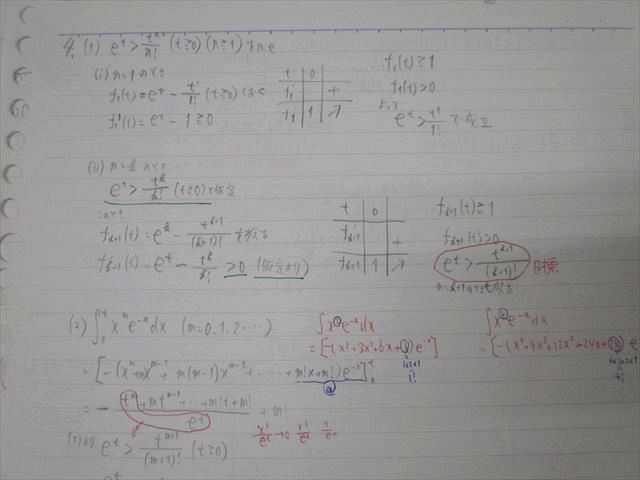 4. (1) e^t > t^n/n! (t≧0) (n≧1) を示せ
(i) n=1のとき
f₁(t) = e^t - t¹/1! (t≧0) とおく
f₁'(t) = e^t - 1 ≧ 0
t 0
f₁' +
f₁ 1 ↗
∴ f₁(t) ≧ 1
f₁(t) > 0
よって
e^t > t¹/1! で成立
(ii) n=k のとき
e^t > t^k/k! (t≧0) と仮定
このとき
f_{k+1}(t) = e^k - t^{k+1}/(k+1)! を考える
f_{k+1}'(t) = e^t - t^k/k! > 0 (仮定より)
t 0
f_{k+1}' +
f_{k+1} 1 ↗
f_{k+1}(t) ≧ 1
f_{k+1}(t) > 0
e^t > t^{k+1}/(k+1)! 目標
n=k+1のときも成立
(2) ∫₀^t x^m e^{-x} dx (m=0,1,2……)
= [-(x^m + mx^{m-1} + m(m-1)x^{m-2} + …… + m!x + m!) e^{-x}]₀^t
= - (t^m + mt^{m-1} + … + m!t + m!)/e^t + m!
∫x³e^{-x}dx
= [-(x³+3x²+6x+6)e^{-x}]
3×2×1
∫x⁴e^{-x}dx
= [-(x⁴+4x³+12x²+24x+24)e
4×3×2×1
4!
x³/e^x → 0 x²/e^x x/e^x
(1)より e^t > t^{m+1}/(m+1)! (t≧0)